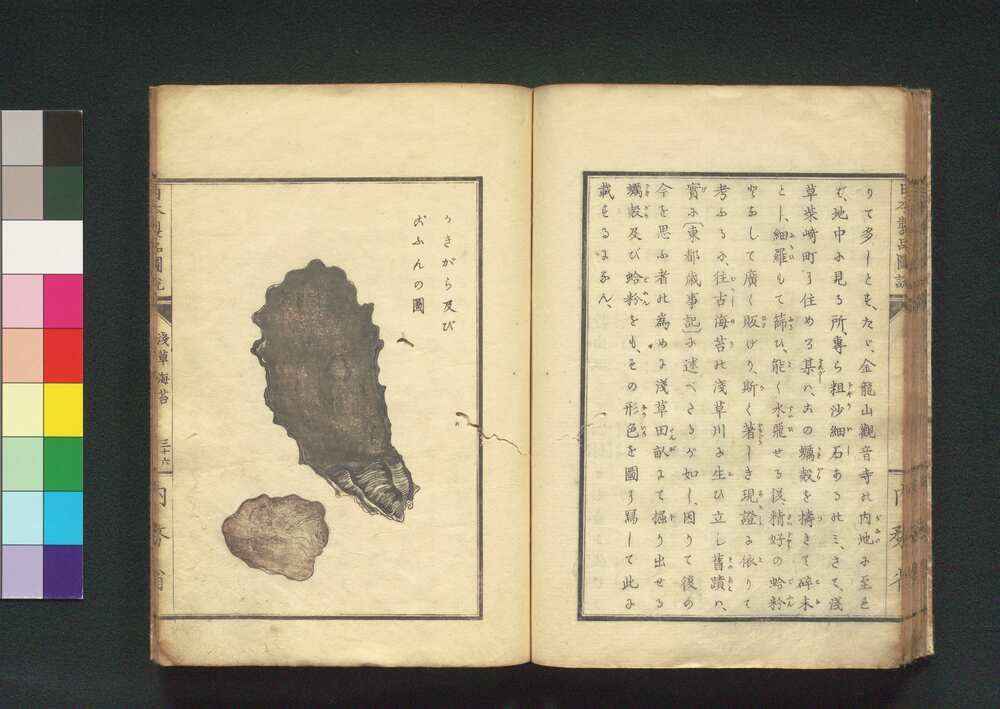 りて多しとも、たゞ、金龍山觀音寺の内地に至ては
で、地中に見る所、專ら粗沙細石あるのミ、さて、淺
草柴崎町に住める某ハ、古の蠣殻を擣きて碎末
とし、細羅もて篩ひ、能く水飛せる後精好の蛤粉
となして廣く販げり、斯く著しき現證に依りて
考ふるに、往古海苔の淺草川に生ひ立し舊蹟ハ、
實に〔東都歳事記〕に述べたるが如し、因りて後の
今を思ふ者の為めに淺草田畝にて掘り出せる
蠣殻及び蛤粉をも、その形色を圖に寫して此に
載するになん、
日本製品圖説
内務省
かきがら及び
ごふんの圖
日本製品圖説
淺草海苔
三十六
内務省